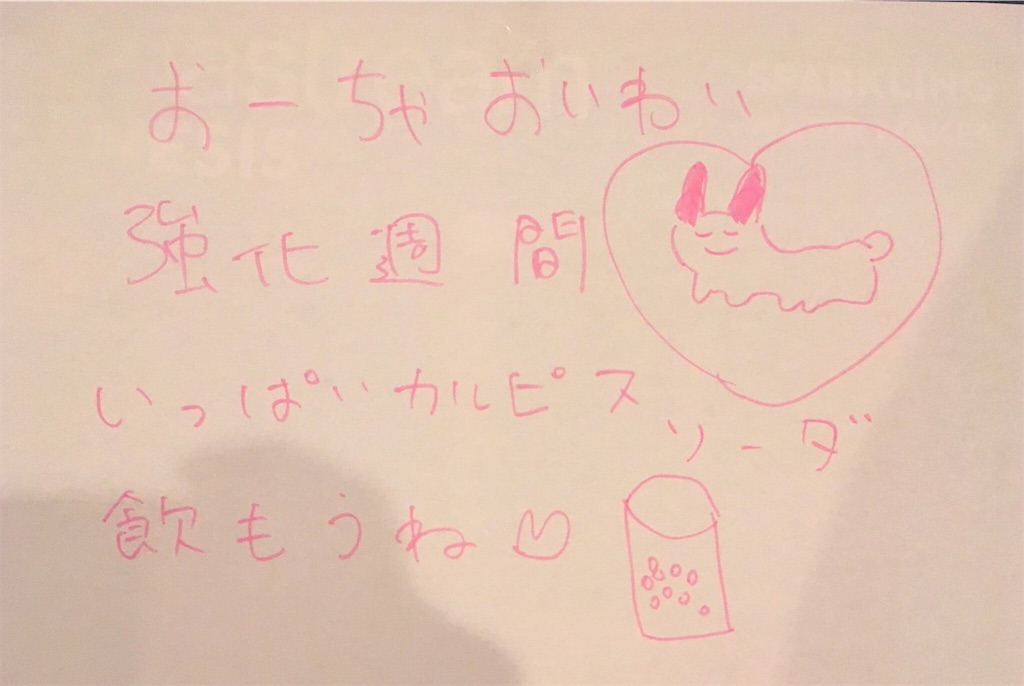 おーちゃおいわい
強化週間
いっぱいカルピス
ソーダ
飲もうね♡